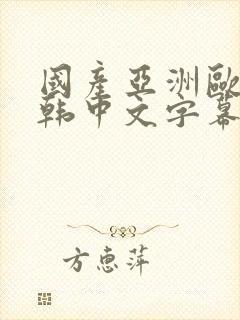 國產亞洲歐
韩中文字幕
方惠萍